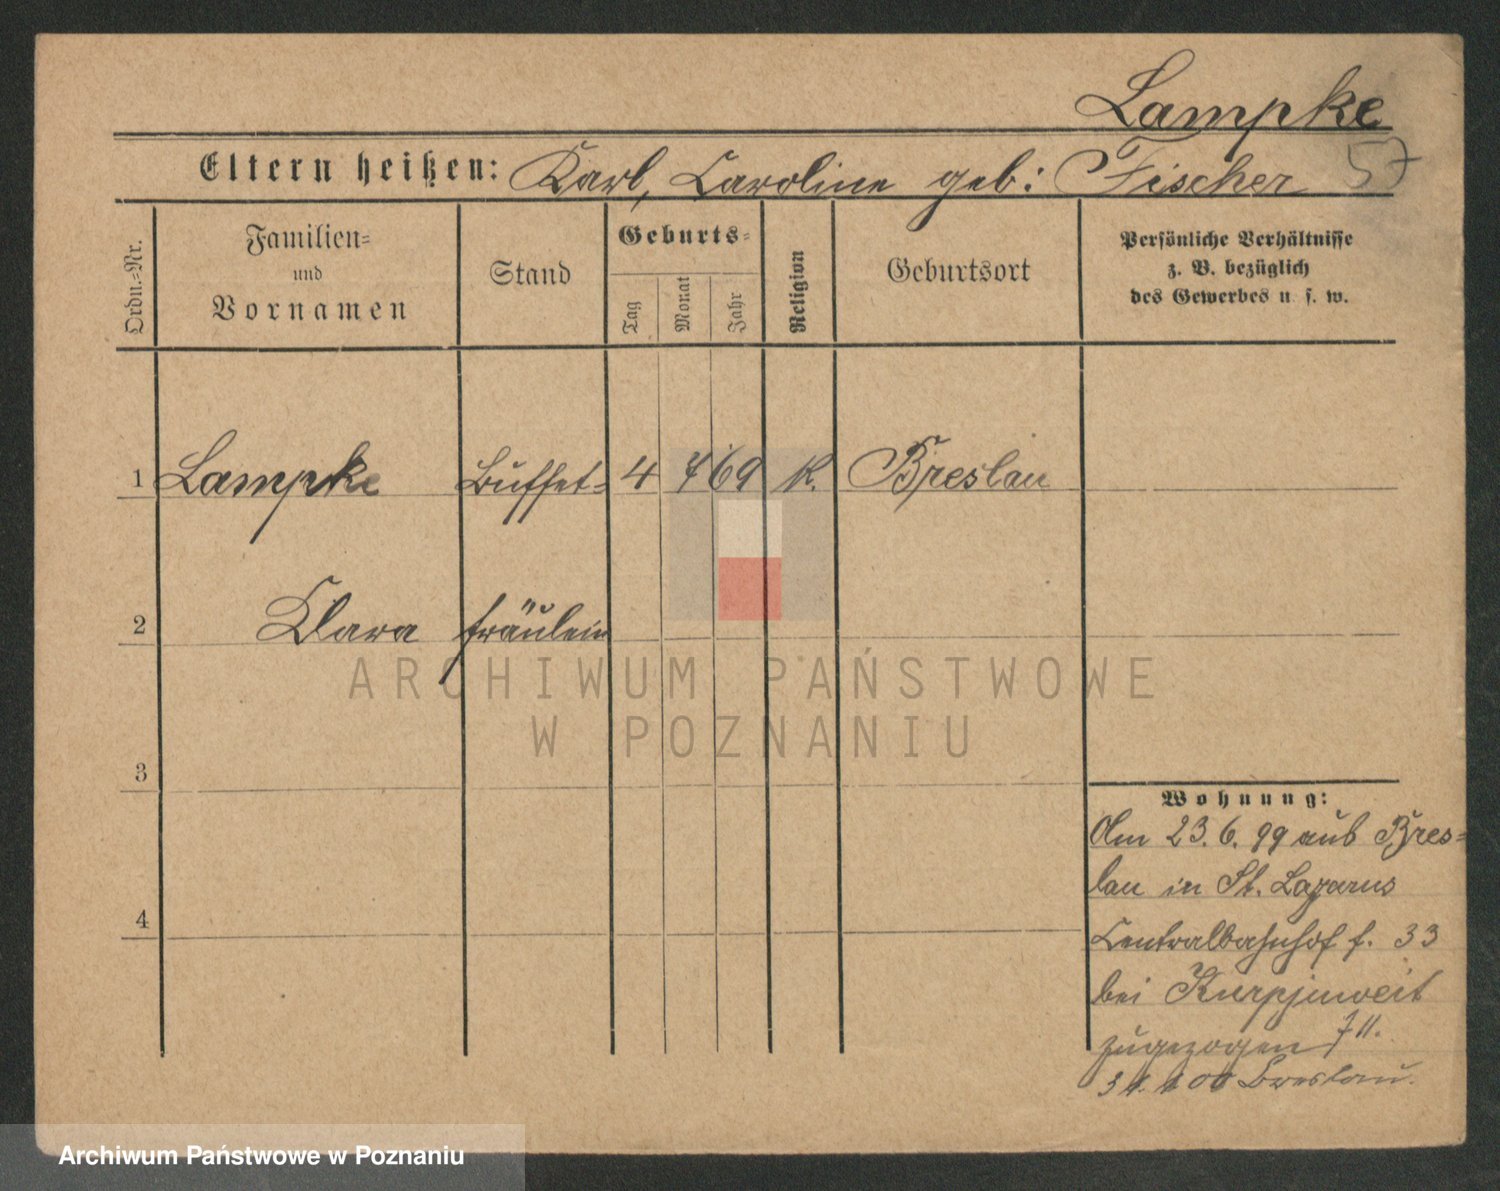 Lampke
57
Eltern heißen: Karl, Caroline geb: Fischer
Ordn.-Nr.
Familien-
und
Vornamen
Stand
Geburts-
Tag
Monat
Jahr
Religion
Geburtsort
Persönliche Verhältnisse
z. B. bezüglich
des Gewerbes u. s. w.
1 Lampke Buffet- 4 7 69 K. Breslau
2 Clara fräulein
ARCHIWUM PAŃSTWOWE
W POZNANIU
3
Wohnung:
Am 23. 6. 99 aus Bres-
lau in St. Lazarus
4
Centralbahnhof f. 33
bei Kurpjuweit
zugezogen
00 Breslau.
Archiwum Państwowe w Poznaniu